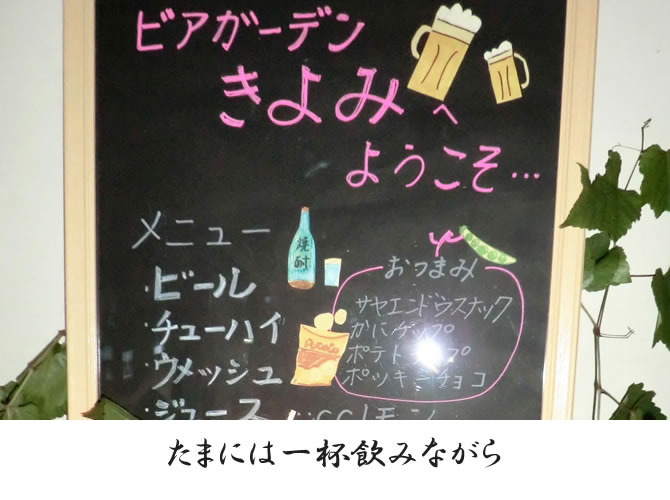 ビアガーデン
きよみへ
ようこそ…
メニュー
焼酎
・ビール
・チューハイ
・ウメッシュ
・ジュース CCレモン
おつまみ
サヤエンドウスナック
かにチップ
ポテト
ポッキーチョコ
Potato
たまには一杯飲みながら